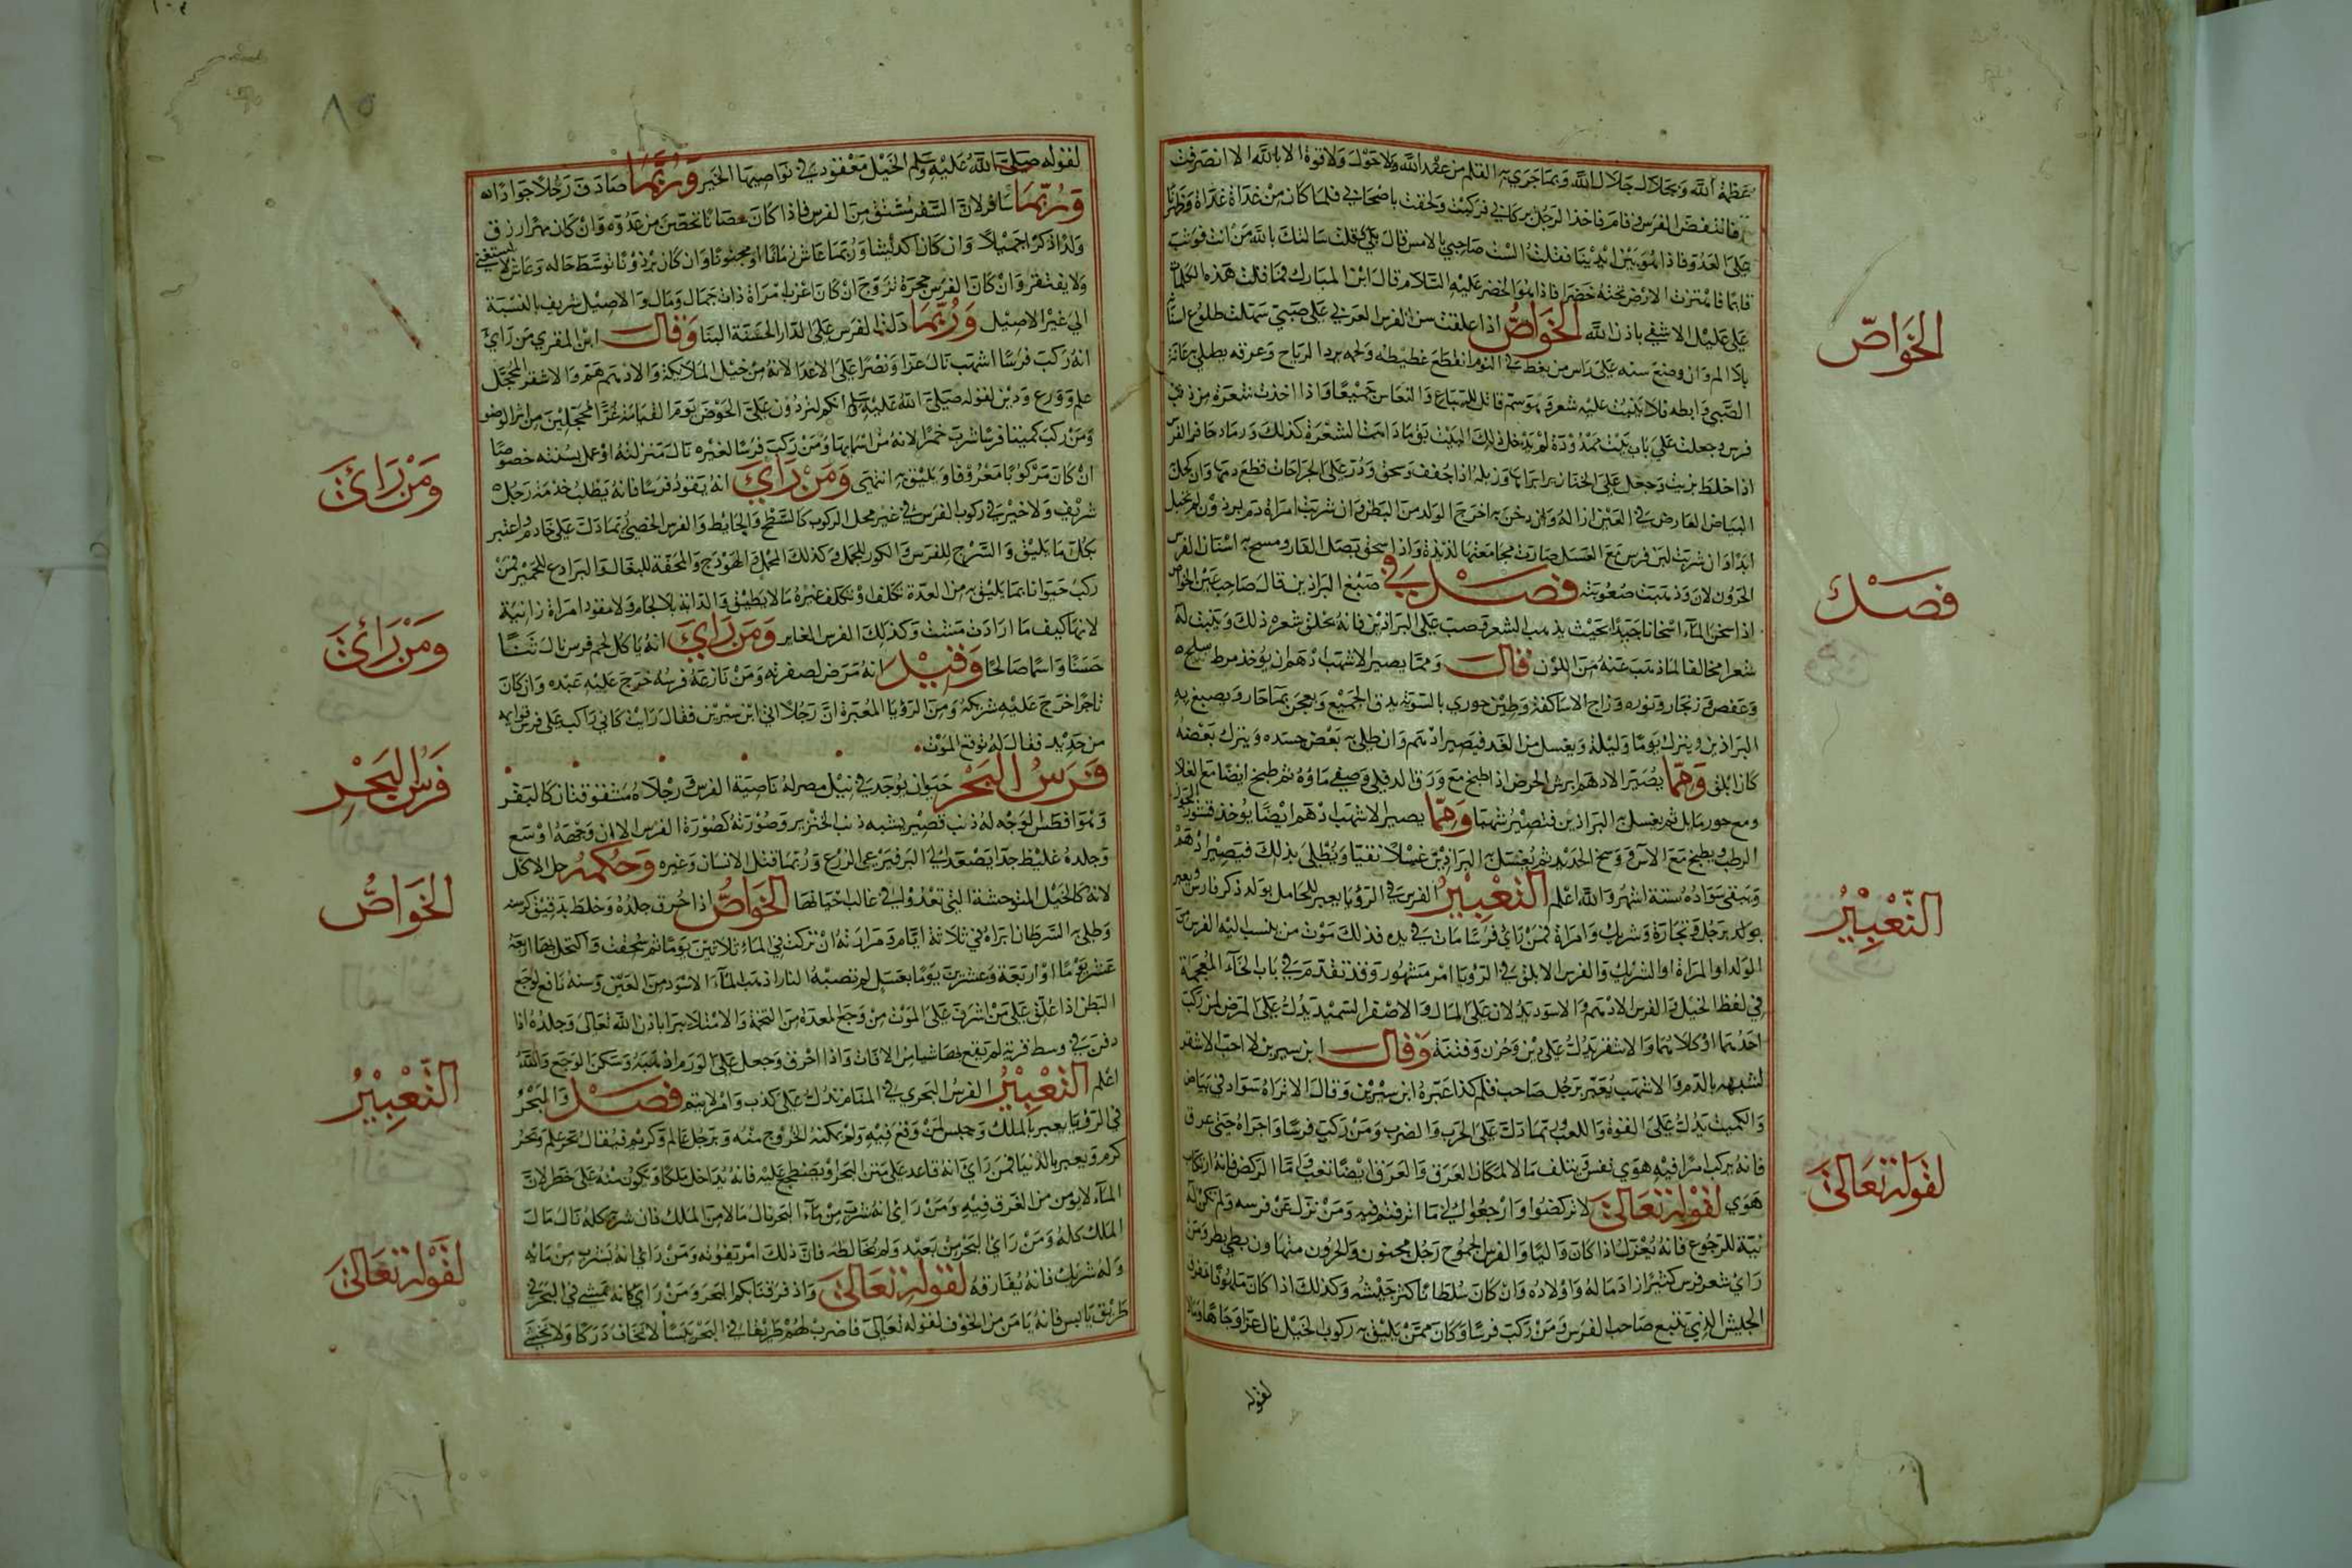 عظمة الله وبجلال جلال الله وبما جرى به القلم من عند الله ولا حول ولا قوة الا بالله الا انصرفت
فانتفض الفرس وقام فاخذ الرجل بركابي فركبت ولحقت باصحابي فلما كان من غداة غد
على العدو فاذا هو بين ايدينا فقلت الست صاحبي بالامس قال بلى قلت سالتك بالله من انت فوثب
قايما فاهتزت الارض تحته خضرا فاذا هو الخضر عليه السلام قال ابن المبارك فما قلت هذه الكلمات
على عليل الا شفي باذن الله الخواص اذا علقت سن الفرس العربي على صبي سهلت طلوع
بلا الم وان وضع سنه على راس من يغط في النوم انقطع غطيطه ولحمه يرد الرياح وعرقه يطلى به عانة
الصبي وابطه فلا ينبت عليه شعر وهو سم قاتل للسباع والنعابين جميعا واذا اخذت شعرة من ذنب
فرس وجعلت على باب بيت ممدودة لم يدخل ذلك البيت بق مادامت الشعرة كذلك ورماد حافر الفرس
اذا خلط بزيت وجعل على الخنازير ابراها وزبله اذا جفف وسحق وذر على الجراحات قطع دمها وان كحل
البياض العارض في العين ازاله وان دخن به اخرج الولد من البطن وان شربت امراة دم برذون لم تحبل
ابدا وان شربت لبن فرس مع العسل صارت مجامعتها لذيذة واذا سحق بصل الفار ومسح به اسنان الفرس
الحرون لان وذهبت صعوبته فصل في صبغ البراذين قال صاحب عين الخواص
اذا سخن الماء اسخانا جيدا بحيث يذهب الشعر وصب على البراذين فانه يحلق شعره ذلك وينبت له
شعرا مخالفا لما ذهب عنه من اللون قال ومما يصير الاشهب ادهم ان يوخذ مر
وعفص وزنجار ونوره وزاج الاساكفة وطين حوري بالسوية يدق الجميع ويعجن بماء حار ويصبغ به
البراذين ويترك يوما وليلة ويغسل من الغد فيصير ادهم وان طلي به بعض جسده ويترك بعضه
كان ابلق ومما يصير الادهم ابرش الحرض اذا طبخ مع ورق الدفلى وصفي ماوه ثم طبخ ايضا
ثم يغسل به البراذين فتصير شهبا ومما يصير الاشهب ادهم ايضا يوخذ قشور الجوز
الرطب ويطبخ مع الاس ووسخ الحديد ثم يغسل به البراذين غسلا نقيا ويطلى بذلك فيصير ادهم
ويبقى سواده ستة اشهر والله اعلم التعبير الفرس في الرؤيا يعبر للحامل بولد ذكر فارس ويعبر
بولد برجل وتجارة وشريك وامراة فمن راى فرسا مات في يده فذلك موت من ينسب اليه الفرس من
الولد او المراة او الشريك والفرس الابلق في الرويا امر مشهور وقد تقدم في باب الخاء المعجمة
في لفظ الخيل والفرس الادهم والاسود يدلان على المال والاصفر السميد يدل على المرض لمن ركب
احدهما او كلاهما والاشقر يدل على دين وحزن وفتنة وقال ابن سيرين لا احب الاشقر
لشبهه بالدم والاشهب يعبر برجل صاحب قلم كذا عبره ابن سيرين وقال الا تراه سواد في بياض
والكميت يدل على القوة واللعب وربما دل على الحرب والضرب ومن ركب فرسا واجراه حتى عرق
فانه يركب امرا فيه هوى نفس ويتلف مالا لمكان العرق والعرق ايضا تعب واما الركض فانه ارتكاب
هوى لقوله تعالى لا تركضوا وارجعوا الى ما اترفتم فيه ومن نزل عن فرسه ولم تكن له
نية للرجوع فانه يعزل اذا كان واليا والفرس الجموح رجل مجنون والحرون متهاون بطي
راى شعر فرس كثير ازاد ماله واولاده وان كان سلطانا كثر جيشه وكذلك اذا كان
الجيش الذي يتبع صاحب الفرس ومن ركب فرسا وكان ممن يليق به ركوب الخيل نال عزا وجاها ومالا
لقوله
الخواص
فصل
التعبير
لقوله تعالى
لقوله صلى الله عليه وسلم الخيل معقود في نواصيها الخير وربما صادق رجلا جوادا
وربما سافر لان السفر مشتق من الفرس فاذا كان حصانا تحصن من عدوه وان كان مهرا رزق
ولدا ذكرا جميلا وان كان اكديشا وربما عاش زمانا او مجنونا وان كان برذونا توسط حاله وعاش لا يستغني
ولا يفتقر وان كان الفرس حجرة تزوج ان كان اعزب امراة ذات جمال ومال والاصيل شريف بالنسبة
الى غير الاصيل وربما دل الفرس على الدار الحسنة البنا وقال ابن المقري من راى
انه ركب فرسا اشهب نال عزا ونصرا على الاعدا لانه من خيل الملائكة والادهم هم والاشقر المحجل
علم وورع ودين لقوله صلى الله عليه وسلم انكم لتردون على الحوض يوم القيامة غرا محجلين من اثر الوضو
ومن ركب كميتا فربما شرب خمرا لانه من اسمايها ومن ركب فرسا لغيره نال منزلته او عمل بسنته خصوصا
ان كان مركوبا معروفا ويليق به انتهى ومن راى انه يقود فرسا فانه يطلب خدمة رجل
شريف ولا خير في ركوب الفرس في غير محل الركوب كالسطح والحايط والفرس الخصي ربما دل على خادم واعتبر
بكل ما يليق والسرج للفرس والكور للجمل وكذلك المحمل والهودج والمحفة للبغال والبرادع للحمير فمن
ركب حيوانا بما يليق به من العدة تكلف او تكلف غيره ما لا يطيق والدابة بلا لجام ولا مقود امراة زانية
لانها كيف ما ارادت مشت وكذلك الفرس الغاير ومن راى انه ياكل لحم فرس نال ثنا
حسنا واسما صالحا وقيل انه مرض لصفرته ومن نازعه فرسه خرج عليه عبده وان كان
تاجرا خرج عليه شريكه ومن الرؤيا المعبرة ان رجلا اتى ابن سيرين فقال رايت كاني راكب على فرس قوايمه
من حديد فقال له توقع الموت
فرس البحر حيوان يوجد في نيل مصر له ناصية الفرس ورجلاه مشقوقتان كالبقر
وهو افطس الوجه له ذنب قصير يشبه ذنب الخنزير وصورته كصورة الفرس الا ان وجهه اوسع
وجلده غليظ جدا يصعد الى البر فيرعى الزرع وربما قتل الانسان وغيره وحكمه حل الاكل
لانه كالخيل المتوحشة التي تعدو الى في غالب احيانها الخواص اذا حرق جلده وخلط بدقيق كرسنه
وطلي به السرطان ابراه في ثلاثة ايام ومرارته ان تركت في الماء ثلاثين يوما ثم سحقت واكتحل بها اربعة
عشر يوما او اربعة وعشرين يوما بعسل لم تصبه النار اذهب الماء الاسود من العين وسنه نافع لوجع
البطن اذا علق على من اشرف على الموت من وجع المعدة من التخمة والامتلاء يبرا باذن الله تعالى وجلده اذا
دفن في وسط قرية لم يقع بها شيا من الافات واذا احرق وجعل على الورم اذهبه وسكن الوجع والله
اعلم التعبير الفرس البحري في المنام تدل على كذب وامر لا يتم فصل والبحر
في الرؤيا يعبر بالملك وحبس لمن وقع فيه ولم يمكنه الخروج منه وبرجل عالم وكريم فيقال بحر علم وبحر
كرم ويعبر بالدنيا فمن راى انه قاعد على متن البحر او يضطجع عليه فانه يداخل ملكا ويكون منه على خطر لان
الماء لا يومن من الغرق فيه ومن راى انه شرب من ماء البحر نال مالا من الملك فان شربه كله نال مال
الملك كله ومن راى البحر من بعيد ولم يخالطه فان ذلك امر يفوته ومن راى انه يشرب من مايه
وله شريك فانه يفارقه لقوله تعالى واذ فرقنا بكم البحر ومن راى كانه يمشي في البحر في
طريق يابس فانه يامن من الخوف لقوله تعالى فاضرب لهم طريقا في البحر يبسا لا تخاف دركا ولا تخشى
ومن راى
ومن راى
فرس البحر
الخواص
التعبير
لقوله تعالى
٨٥